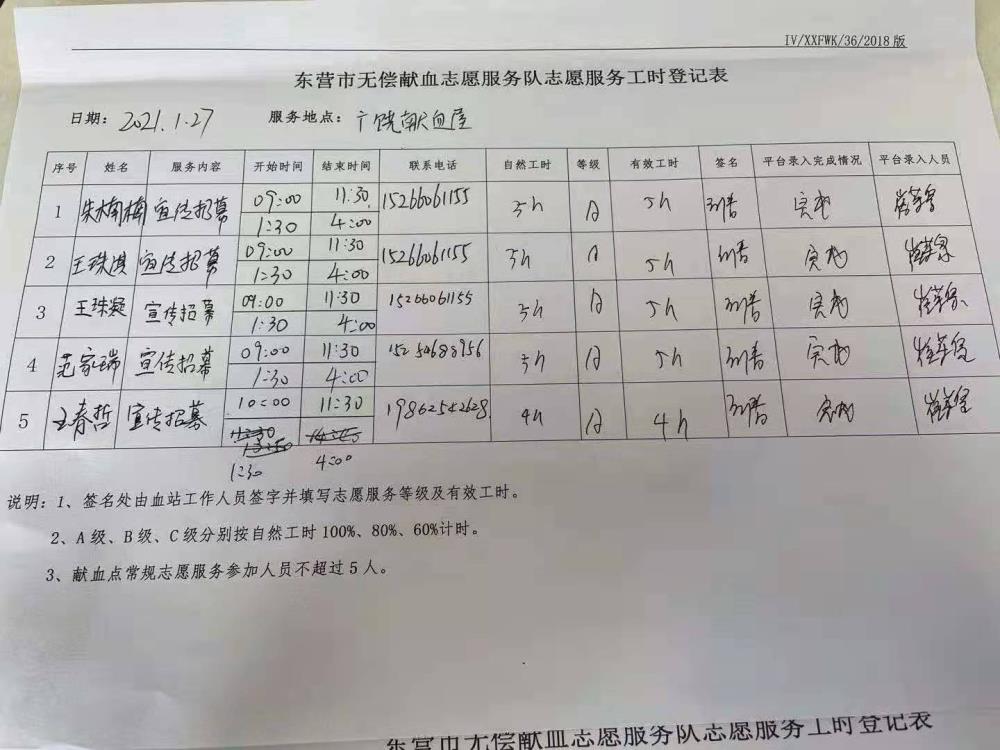 IV/XXFWK/36/2018版
东营市无偿献血志愿服务队志愿服务工时登记表
日期：2021.1.27 服务地点：广饶献血屋
序号 姓名 服务内容 开始时间 结束时间 联系电话 自然工时 等级 有效工时 签名 平台录入完成情况 平台录入人员
1 朱楠楠 宣传招募 09:00 11:30 15266061155 5h A 5h 完成
1:30 4:00
2 王珠淇 宣传招募 09:00 11:30 15266061155 5h A 5h 完成
1:30 4:00
3 王珠凝 宣传招募 09:00 11:30 15266061155 5h A 5h 完成
1:30 4:00
4 范家瑞 宣传招募 09:00 11:30 15254688956 5h A 5h 完成
1:30 4:00
5 王春哲 宣传招募 10:00 11:30 19862542628 4h A 4h 完成
1:30 4:00
说明：1、签名处由血站工作人员签字并填写志愿服务等级及有效工时。
2、A级、B级、C级分别按自然工时100%、80%、60%计时。
3、献血点常规志愿服务参加人员不超过5人。
东营市无偿献血志愿服务队志愿服务工时登记表